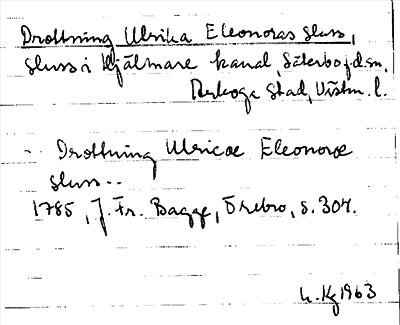 Drottning Ulrika Eleonoras sluss,
sluss i Hjälmare kanal, Säterbo jdsn,
Arboga stad, Västm. l.
Drottning Ulricæ Eleonoræ
sluss..
1785, J. Fr. Bagge, Örebro, s. 307.
1963